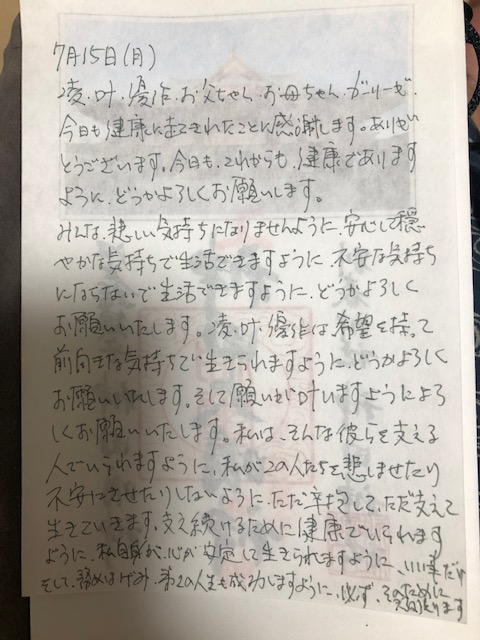 7月15日(月)
凌・叶・優作・お父ちゃん・お母ちゃん・ガーリーも“、
今日も健康に過ごされたことに感謝します。ありが
とうございます。今日も、これからも、健康であります
ように、どうかよろしくお願いします。
みんな、悲しい気持ちになりませんように、安心して穏
やかな気持ちで生活できますように、不安な気持ち
にならないで生活できますように、どうかよろしく
お願いいたします。凌・叶・優作は希望を持って
前向きな気持ちで生きられますように、どうかよろしく
お願いいたします。そして願いが叶いますようによろ
しくお願いいたします。私は、そんな彼らを支える
人でいられますように、私がこの人たちを悲しませたり
不安にさせたりしないように、ただ辛抱して、ただ支えて
生きていきます。支え続けるために健康でいられます
ように、私自身が、心が安定して生きられますように、いい事だけ
をして、務めはげみ、第2の人生も成功しますように、必ず、そのために
頑張ります